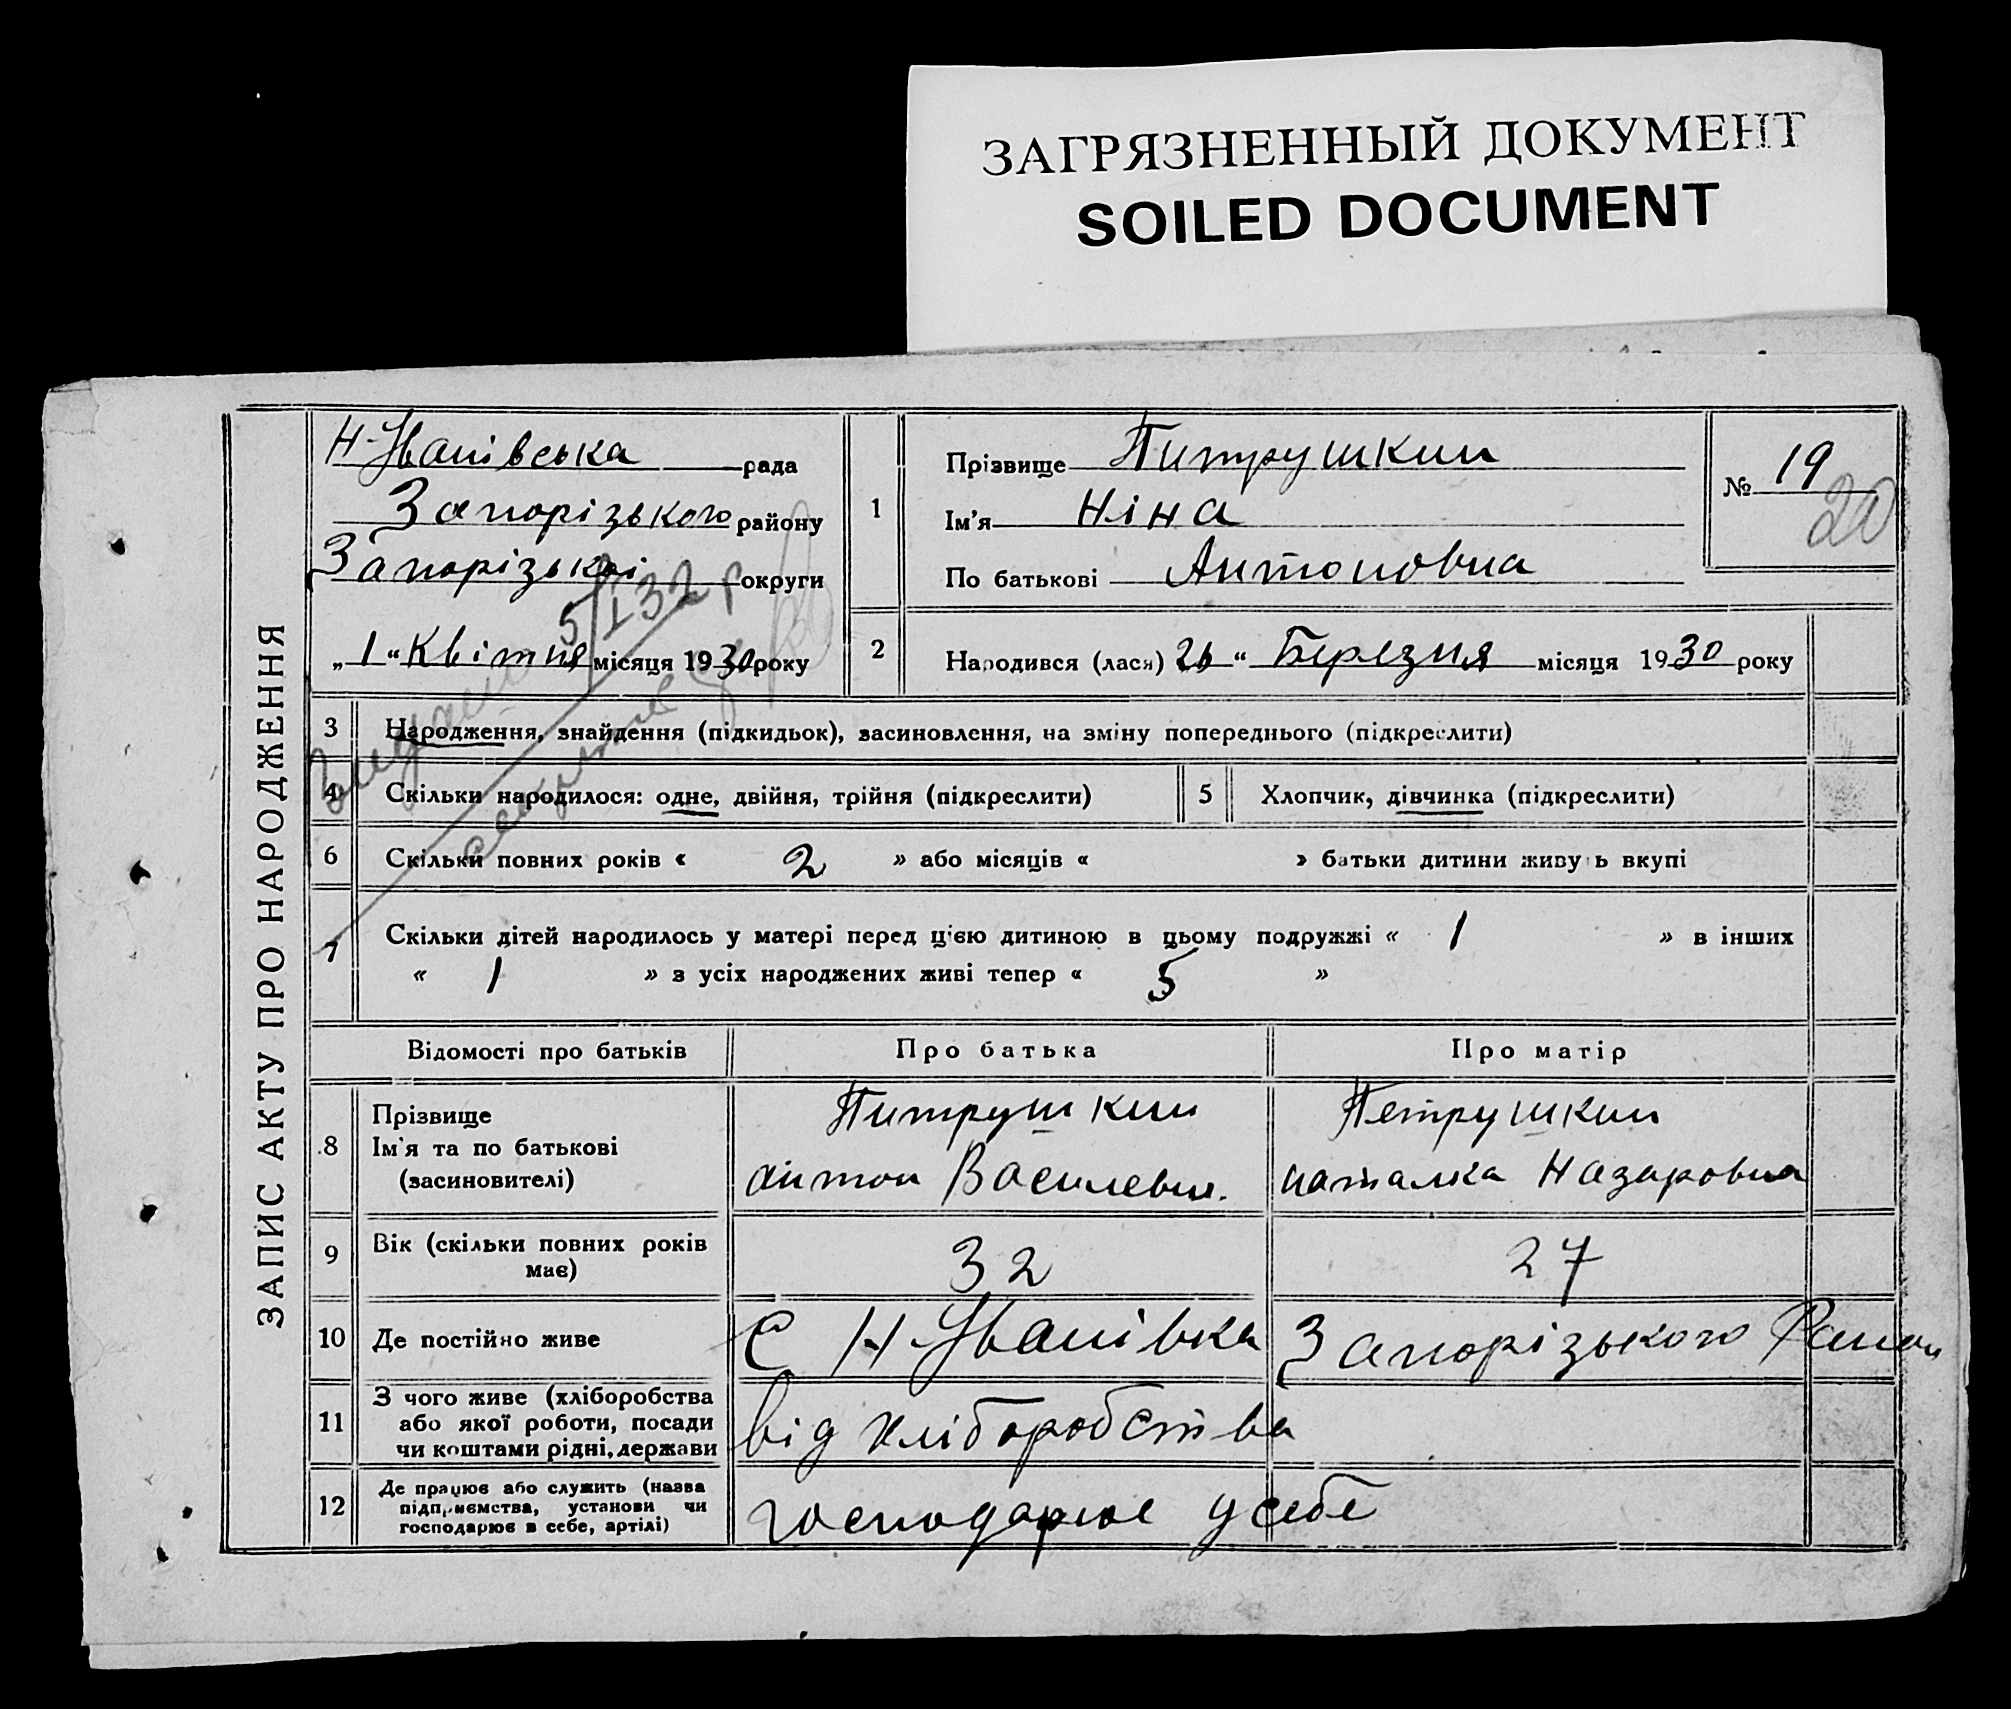 ЗАГРЯЗНЕННЫЙ ДОКУМЕНТ
SOILED DOCUMENT
ЗАПИС АКТУ ПРО НАРОДЖЕННЯ
Н-Іванівська рада
Запорізького району
Запорізької округи
„ 1 “ Квітня місяця 1930 року
5/I 32 р
1
Прізвище Питрушкин
Ім'я Ніна
По батькові Антоновна
№ 19
20
2 Народився (лася) 26 “ Березня місяця 1930 року
3 Народження, знайдення (підкидьок), засиновлення, на зміну попереднього (підкреслити)
4 Скільки народилося: одне, двійня, трійня (підкреслити)
5 Хлопчик, дівчинка (підкреслити)
6 Скільки повних років « 2 » або місяців « » батьки дитини живуть вкупі
7 Скільки дітей народилось у матері перед цією дитиною в цьому подружжі « 1 » в інших
« 1 » з усіх народжених живі тепер « 5 »
Відомості про батьків Про батька Про матір
8 Прізвище
Ім'я та по батькові
(засиновителі)
Питрушкин
Антон Василевич.
Петрушкин
Наталка Назаровна
9 Вік (скільки повних років
має)
32
27
10 Де постійно живе
С Н-Іванівка Запорізького Район
11 З чого живе (хліборобства
або якої роботи, посади
чи коштами рідні, держави
від хліборобства
12 Де працює або служить (назва
підприємства, установи чи
господарює в себе, артілі)
господарює у себе